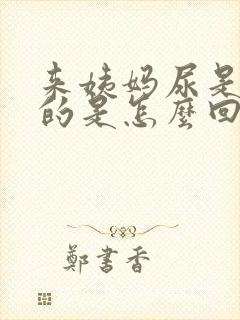 来姨妈尿是
的是怎麼回
鄭書香